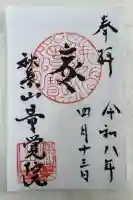 奉拝
令和八年
四月十三日
秋葉山
量覚院